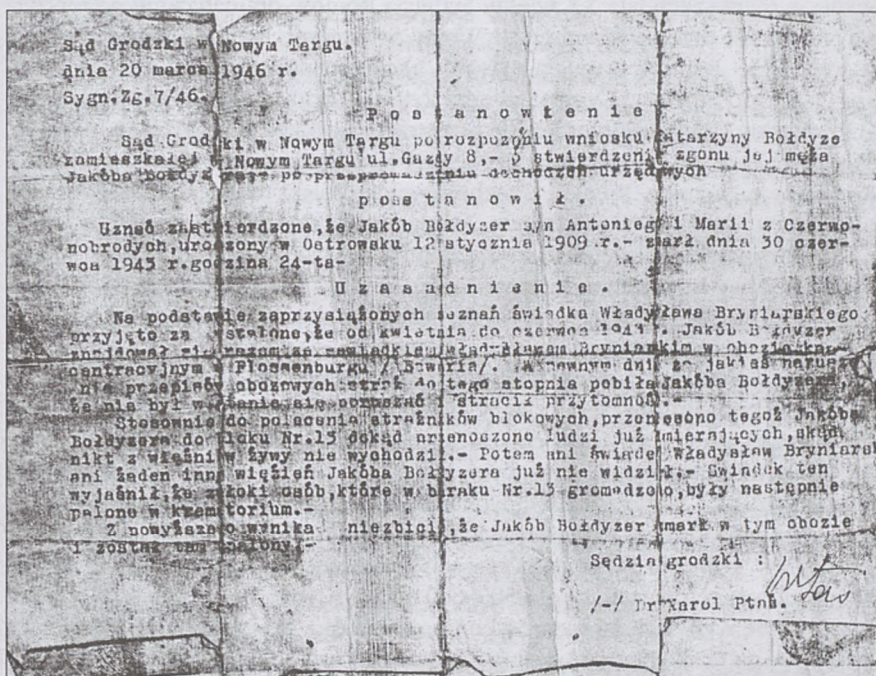 Sąd Grodzki w Nowym Targu.
dnia 20 marca 1946 r.
Sygn.Zg.7/46.
P o s t a n o w i e n i e
Sąd Grodzki w Nowym Targu po rozpozniu wniosku Katarzyny Bołdyze
zamieszkałej w Nowym Targu ul.Gazdy 8,- o stwierdzenie zgonu jej męża
Jakóba po przeprowadziniu dochodzeń urzędwych
p o s t a n o w i ł .
Uznać za stwierdzone,że Jakób Bołdyzer syn Antoniego i Marii z Czerwo-
nobrodych,urodzony w Ostrowsku 12 stycznia 1909 r.- zmarł dnia 30 czer-
wca 1945 r.godzina 24-ta-
U z a s a d n i e n i e .
Na podstawie zaprzysiążonych zeznań świadka Władysława Bryniarskiego
przyjęto za ustalone,że od kwietnia do czerwca Jakób Bołdyzer
znajdował się razem ze świadkiem Władysławem Bryniarskim w obozie kon-
centracyjnym w Flossenburgu / Bawaria/. W pewnym dniu za jakieś narusze
nie przepisów obozowych straż do tego stopnia pobiła Jakóba Bołdyzera,
że nie był w stanie się poruszać i stracił przytomność.-
Stosownie do polecenia strażników blokowych,przeniesono tegoż Jakóba
Bołdyzera do bloku Nr.13 dokąd przenoszono ludzi już umierających,skąd
nikt z więźniów żywy nie wychodził.- Potem ani świadek Władysław Bryniarsk
ani żaden inny więzień Jakóba Bołdyzera już nie widział.- Świadek ten
wyjaśnił,że zwłoki osób,które w baraku Nr.13 gromadzono,były następnie
palone w krematorium.-
Z powyższego wynika niezbicie,że Jakób Bołdyzer zmarł w tym obozie
i został tam spalony.-
Sędzia grodzki :
/-/ Dr Karol Ptaś.